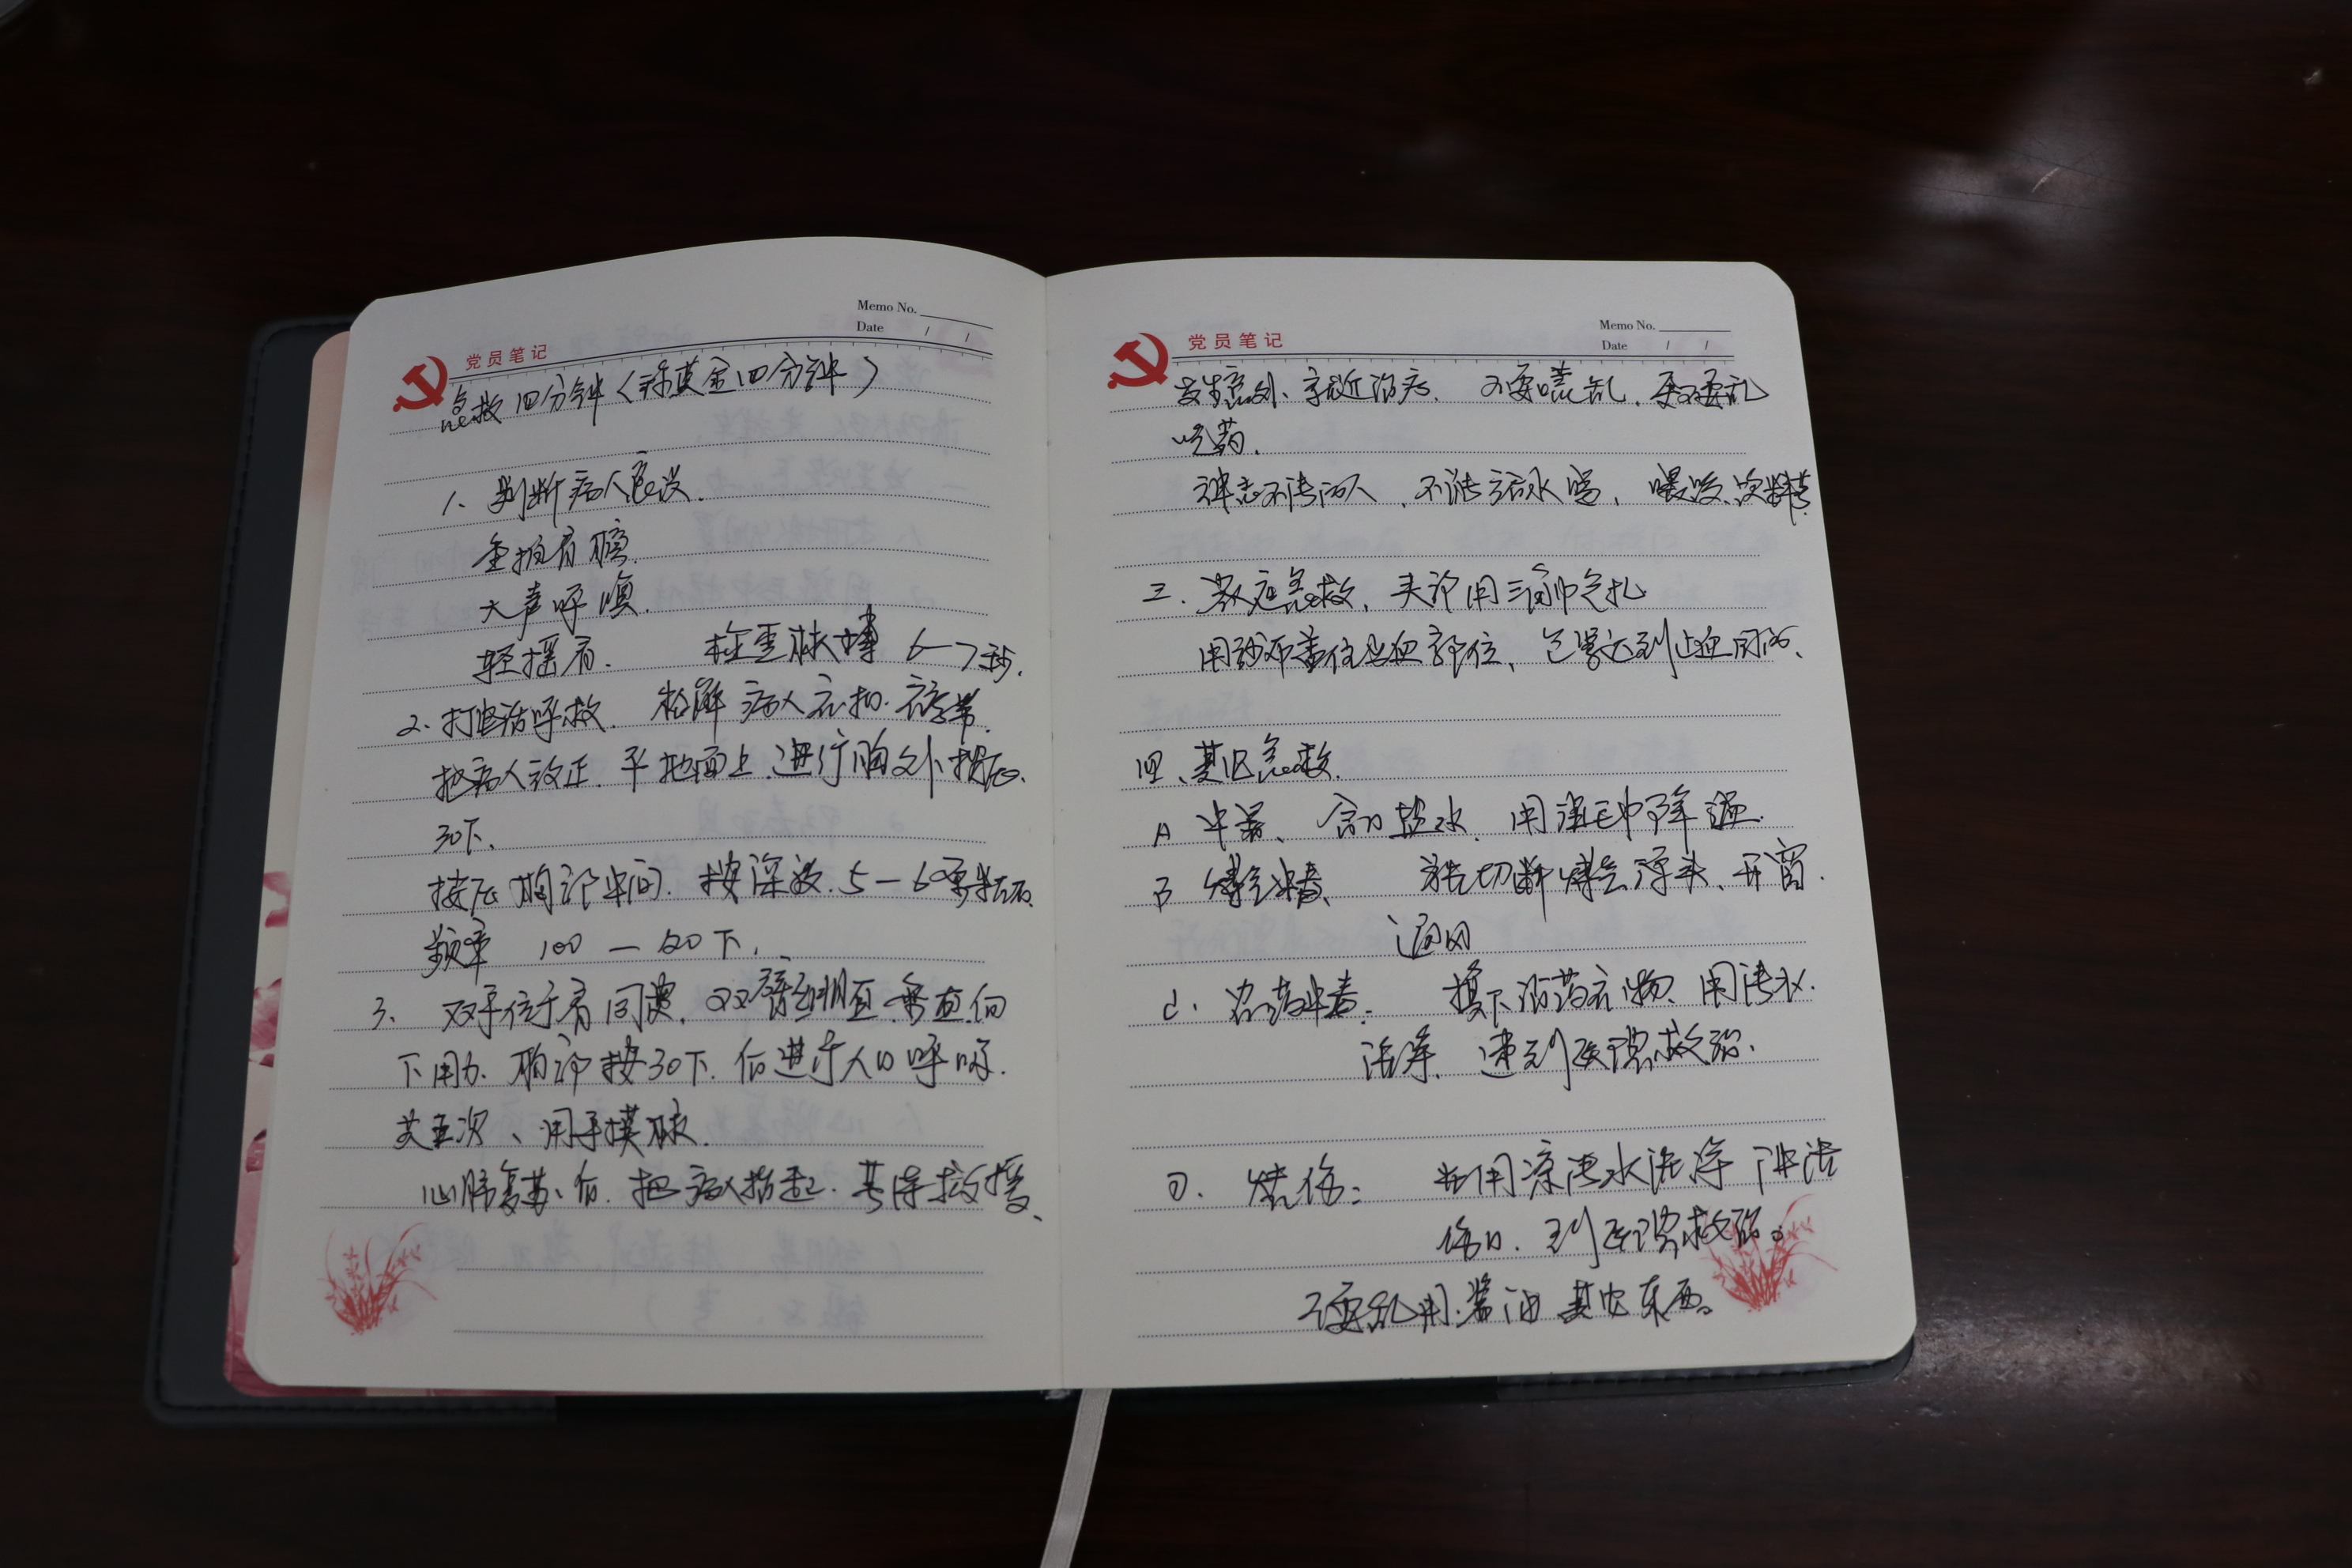 Memo No.
Date / /
党员笔记
急救四分钟（称黄金四分钟）
1、判断病人意识.
大声呼唤.
轻摇肩. 检查脉搏 6—7秒.
2.打电话呼救. 松解病人衣扣.
把病人放正.平地面上.进行胸外按压.
30下.
按压胸部中间.按深度.5—6厘米左右.
频率 100 —
3、双手位于肩同宽.双臂绷直.垂直向
下用力.胸部按30下.后进行人口呼吸.
共五次、用手摸脉.
心肺复苏、后.把病人抬起.等待救援、
Memo No.
Date / /
党员笔记
发生意外、就近治疗. 不要慌乱.更不要乱
吃药.
神志不清病人，不能给水喝，喂饭、饮料等.
三.家庭急救，头部用三角巾包扎
用纱布盖住出血部位、包裹达到止血
四、其它急救.
A 中暑、含口盐水.用湿毛巾降温.
B 煤气中毒、 首先切断煤气源头、开窗.
通风
C. 农药中毒: 换下沾药衣物、用清水.
洗净、速到医院救治.
D. 烧伤: 先用凉清水洗净 冲洗
伤口.到医院救治。
不要乱用.酱油 其它东西。